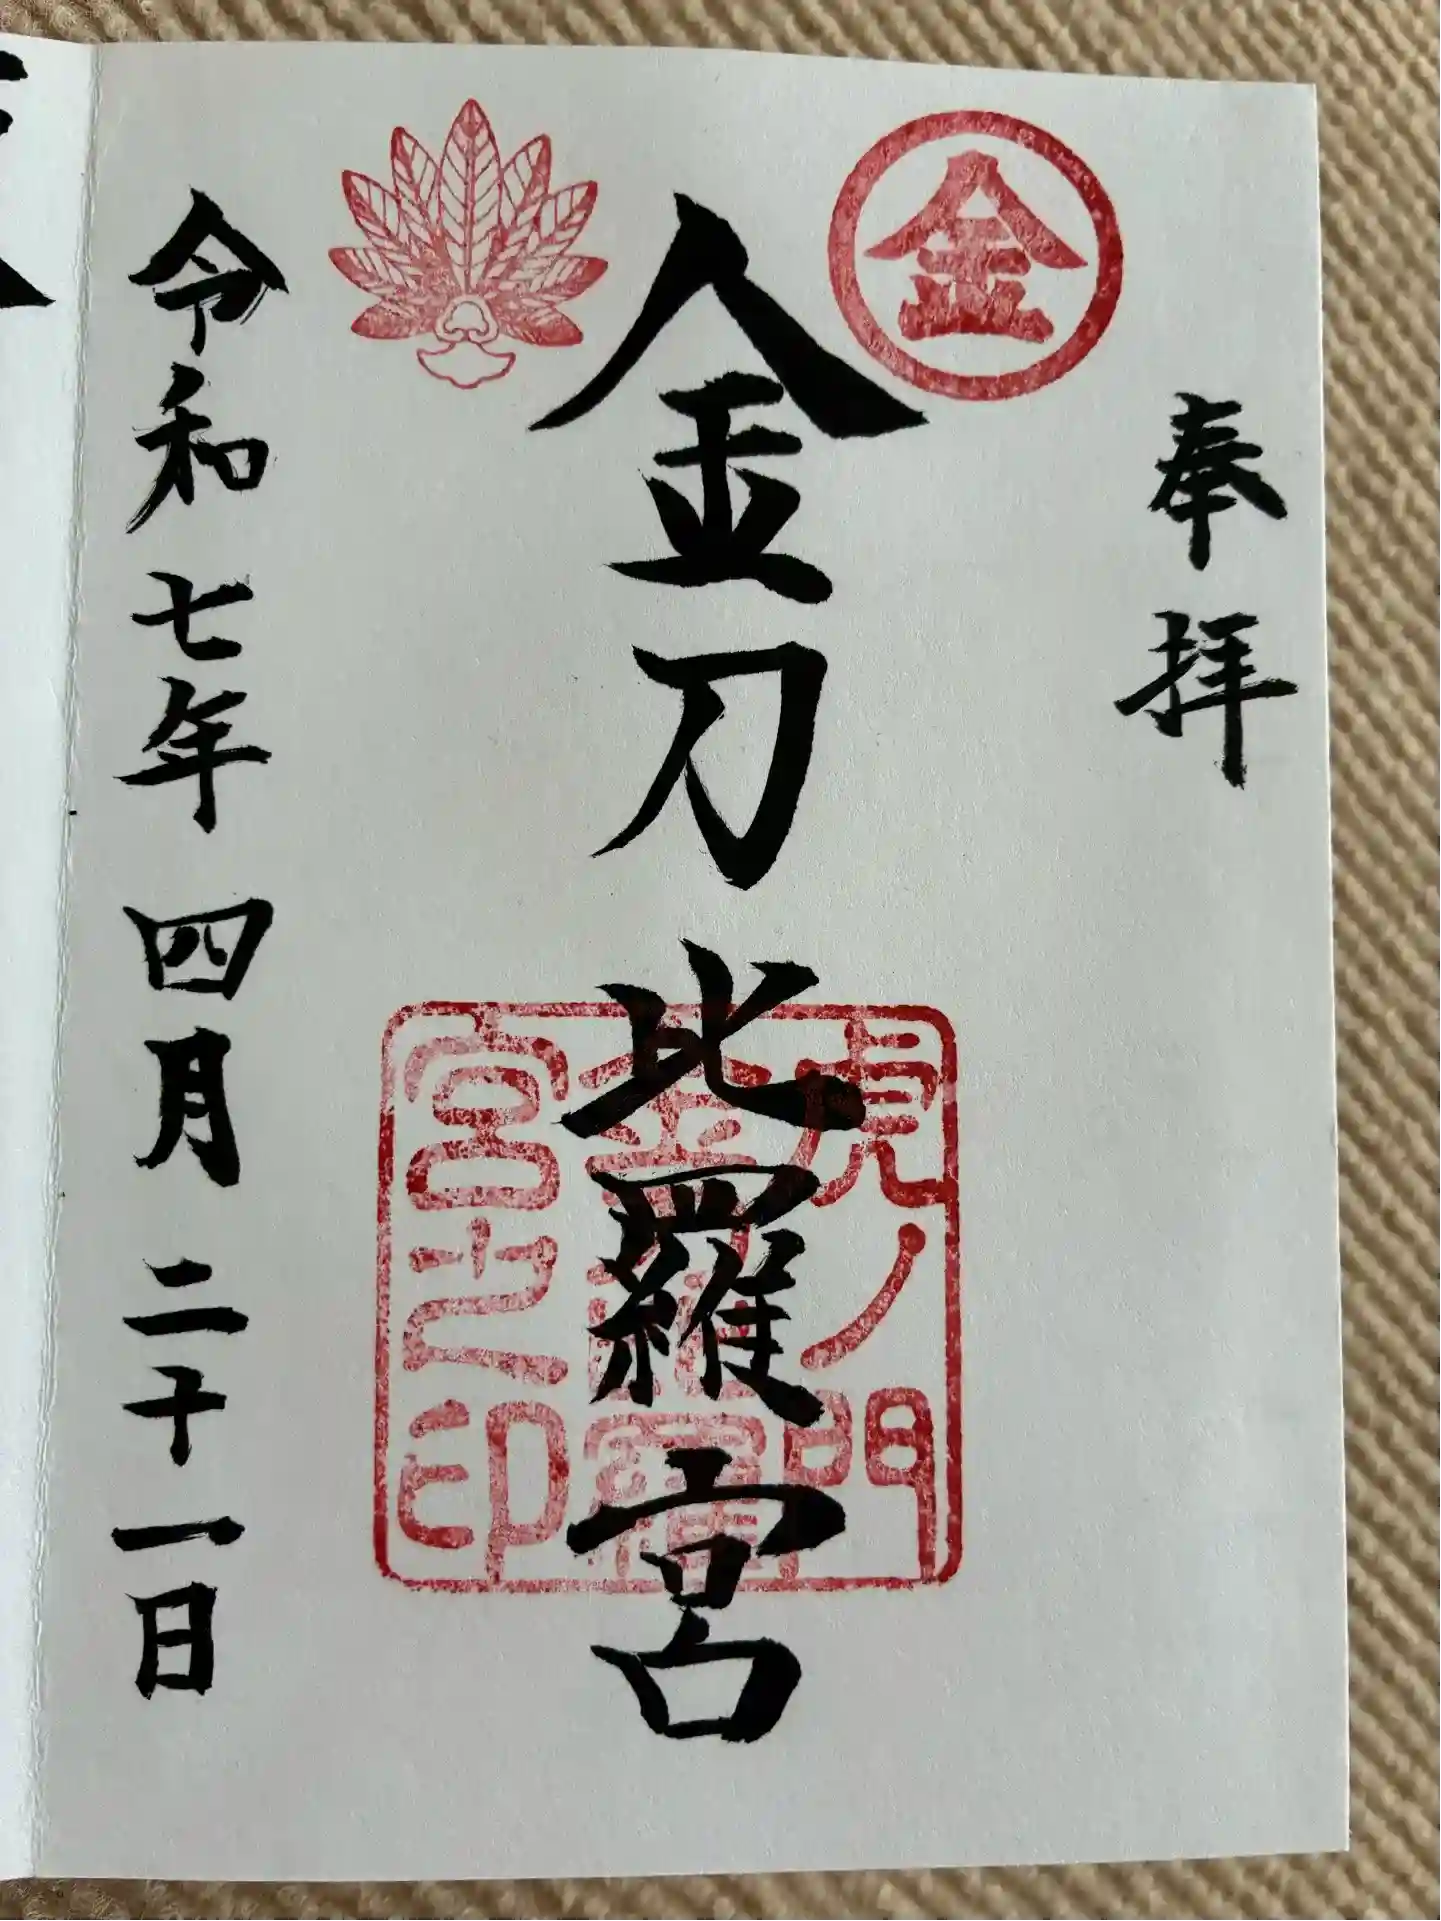 奉拝
金
金刀比羅宮
虎ノ門
金刀比羅
宮之印
令和七年四月二十一日